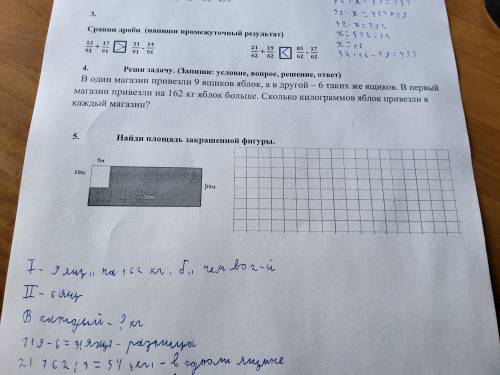 32 · x = 493 + 99
x = 592 : 32
3.
Сравни дроби (напиши промежуточный результат)
12/91 + 17/91 > 31/91 - 14/91   21/62 + 19/62 < 85/62 - 17/62
4. Реши задачу. (Запиши: условие, вопрос, решение, ответ)
В один магазин привезли 9 ящиков яблок, а в другой – 6 таких же ящиков. В первый
магазин привезли на 162 кг яблок больше. Сколько килограммов яблок привезли в
каждый магазин?
5. Найти площадь закрашенной фигуры.
5м
10м
10м
50м
I - 9 ящ., на 162 кг, б., чем во 2-й
II - 6 ящ
В каждый - ? кг
1) 9 - 6 = 3(ящ) - разница
2) 162 : 3 = 54 (кг) - в одном ящике